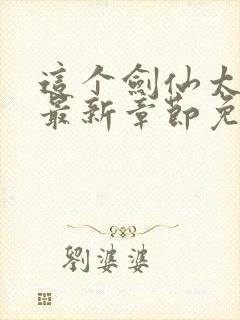 這个劍仙太
最新章節免
劉婆婆